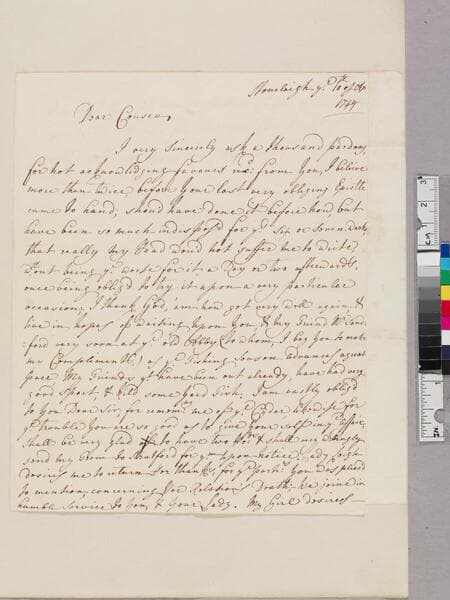 Stoneleigh y.e 10th of
1744
Dear Cousen,
I very sincerely ask a thousand pardons,
for not acknoledging favours rec'd from You, I believe
more then twice, before Your last very obliging Epistle
came to hand; should have done it before now, but
have been so much indispos'd for y.e Six or Seven
that really my Head woud not suffer me to write,
dont being y.e worse for it a Day or two afterwards,
once being oblig'd to try it upon a very particular
occasion; I thank God, am now got very well again, &
live in hopes of waiting upon You, & my Friend
ford very soon at y.e old Abby (to whom, I beg You to make
my Complements,) as y.e Fishing Season advances a great
pace. My Friends y.t have been out already, have had very
good Sport, & kill'd some good Fish, I am vastly oblig'd
to You Dear Sir, for me of y.e Cyder, &
y.e trouble You are so good as to give Your self in
shall be very glad to have two & shall very
send my Team to Stratford for y.m upon notice, Lady Leigh
desires me to return Her thanks, for y.e You was pleas'd
to mention, concerning Her Relation's Death; We joine in
humble Service to You, & Your Lady. My Girl desires